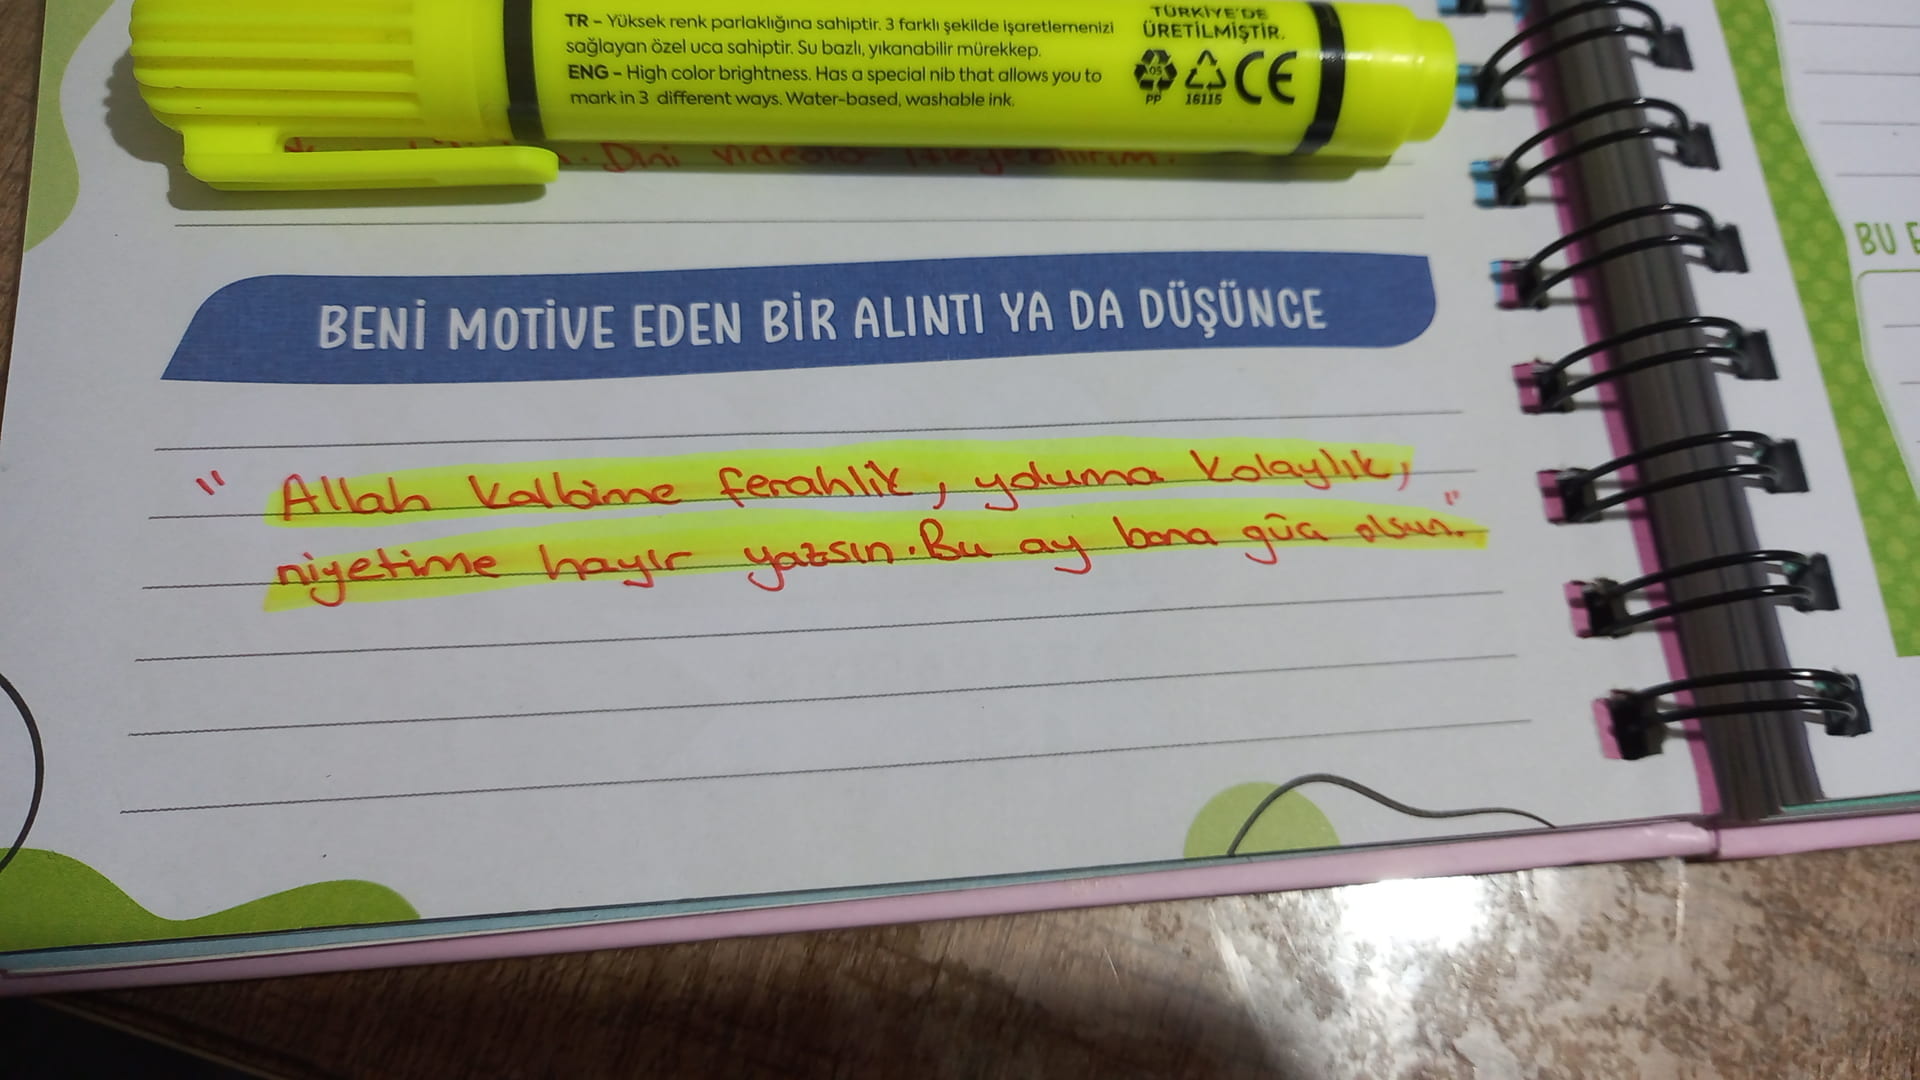 TR – Yüksek renk parlaklığına sahiptir. 3 farklı şekilde işaretlemenizi
sağlayan özel uca sahiptir. Su bazlı, yıkanabilir mürekkep.
ENG – High color brightness. Has a special nib that allows you to
mark in 3 different ways. Water-based, washable ink.
TÜRKİYE'DE
ÜRETİLMİŞTİR.
05
PP
16115
CE
Dini videola izleyebilirim.
BENİ MOTİVE EDEN BİR ALINTI YA DA DÜŞÜNCE
" Allah kalbime ferahlik, yoluma kolaylık,
niyetime hayır yazsın. Bu ay bana güç olsun."
BU